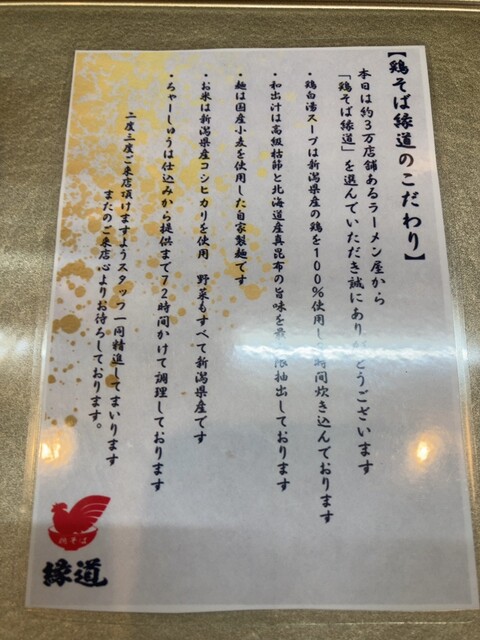 【鶏そば縁道のこだわり】
本日は約3万店舗あるラーメン屋から
「鶏そば縁道」を選んでいただき誠にありがとうございます
・鶏白湯スープは新潟県産の鶏を100%使用し 時間炊き込んでおります
・和出汁は高級枯節と北海道産真昆布の旨味を 限抽出しております
・麺は国産小麦を使用した自家製麺です
・お米は新潟県産コシヒカリを使用 野菜もすべて新潟県産です
・ちゃーしゅうは仕込みから提供まで72時間かけて調理しております
二度三度ご来店頂けますようスタッフ一同精進してまいります
またのご来店心よりお待ちしております。
鶏そば
縁道